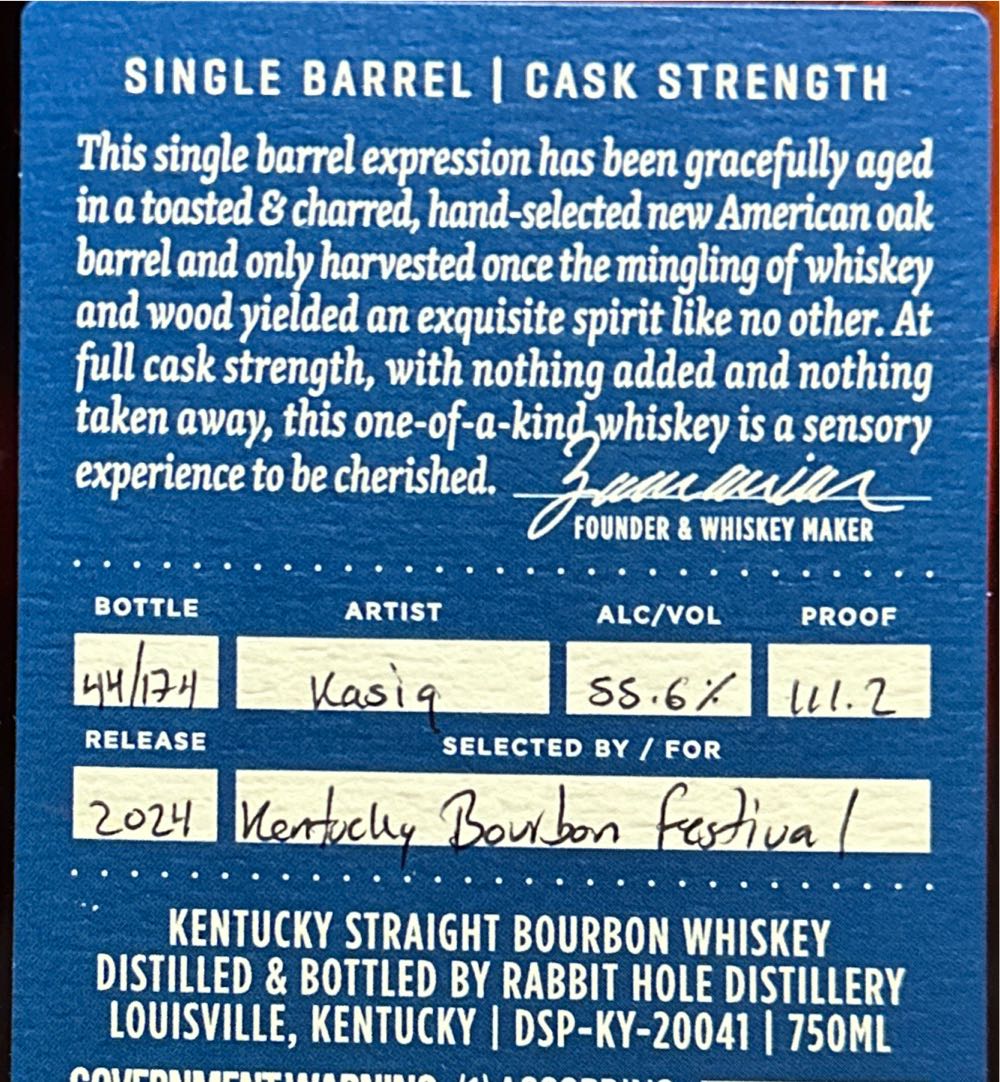 SINGLE BARREL | CASK STRENGTH
This single barrel expression has been gracefully aged
in a toasted & charred, hand-selected new American oak
barrel and only harvested once the mingling of whiskey
and wood yielded an exquisite spirit like no other. At
full cask strength, with nothing added and nothing
taken away, this one-of-a-kind whiskey is a sensory
experience to be cherished.
FOUNDER & WHISKEY MAKER
BOTTLE ARTIST ALC/VOL PROOF
44/174 Kasiq 55.6% 111.2
RELEASE SELECTED BY / FOR
2024 Kentucky Bourbon Festival
KENTUCKY STRAIGHT BOURBON WHISKEY
DISTILLED & BOTTLED BY RABBIT HOLE DISTILLERY
LOUISVILLE, KENTUCKY | DSP-KY-20041 | 750ML
GOVERNMENT WARNING: (1) ACCORDING